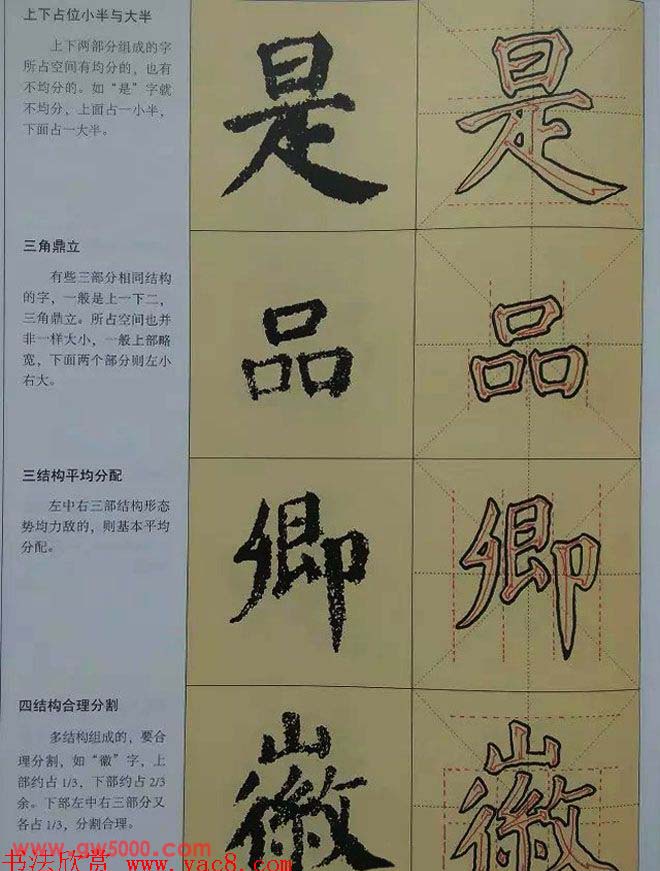 上下占位小半与大半
上下两部分组成的字
所占空间有均分的，也有
不均分的。如“是”字就
不均分，上面占一小半，
下面占一大半。
是
是
三角鼎立
有些三部分相同结构
的字，一般是上一下二，
三角鼎立。所占空间也并
非一样大小，一般上部略
宽，下面两个部分则左小
右大。
品
品
三结构平均分配
左中右三部结构形态
势均力敌的，则基本平均
分配。
卿
卿
四结构合理分割
多结构组成的，要合
理分割，如“徽”字，上
部约占1/3，下部约占2/3
余。下部左中右三部分又
各占1/3，分割合理。
徽
徽
www.gw5000.com
书法欣赏 www.yac8.com